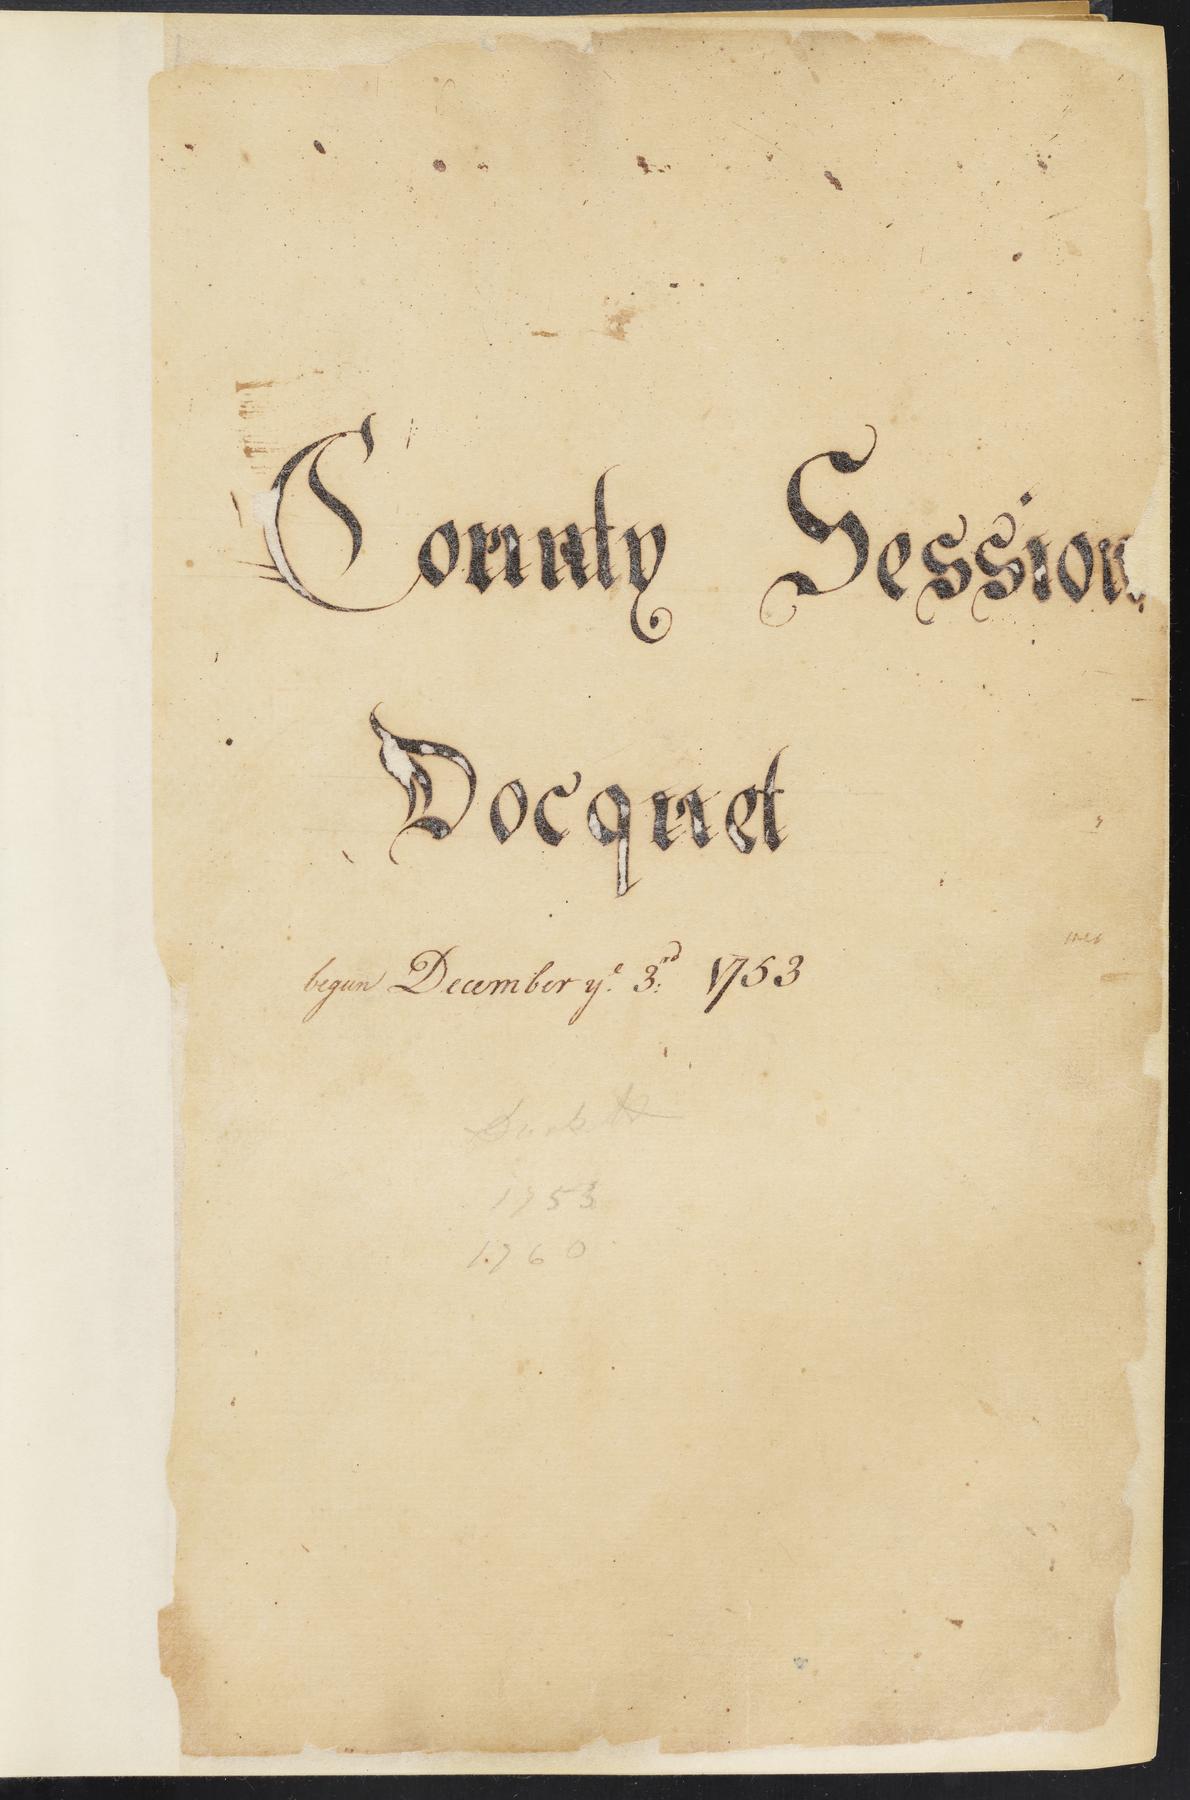 County Session
Docquet
begun December yͤ. 3ʳᵈ: 1753
1753
1760